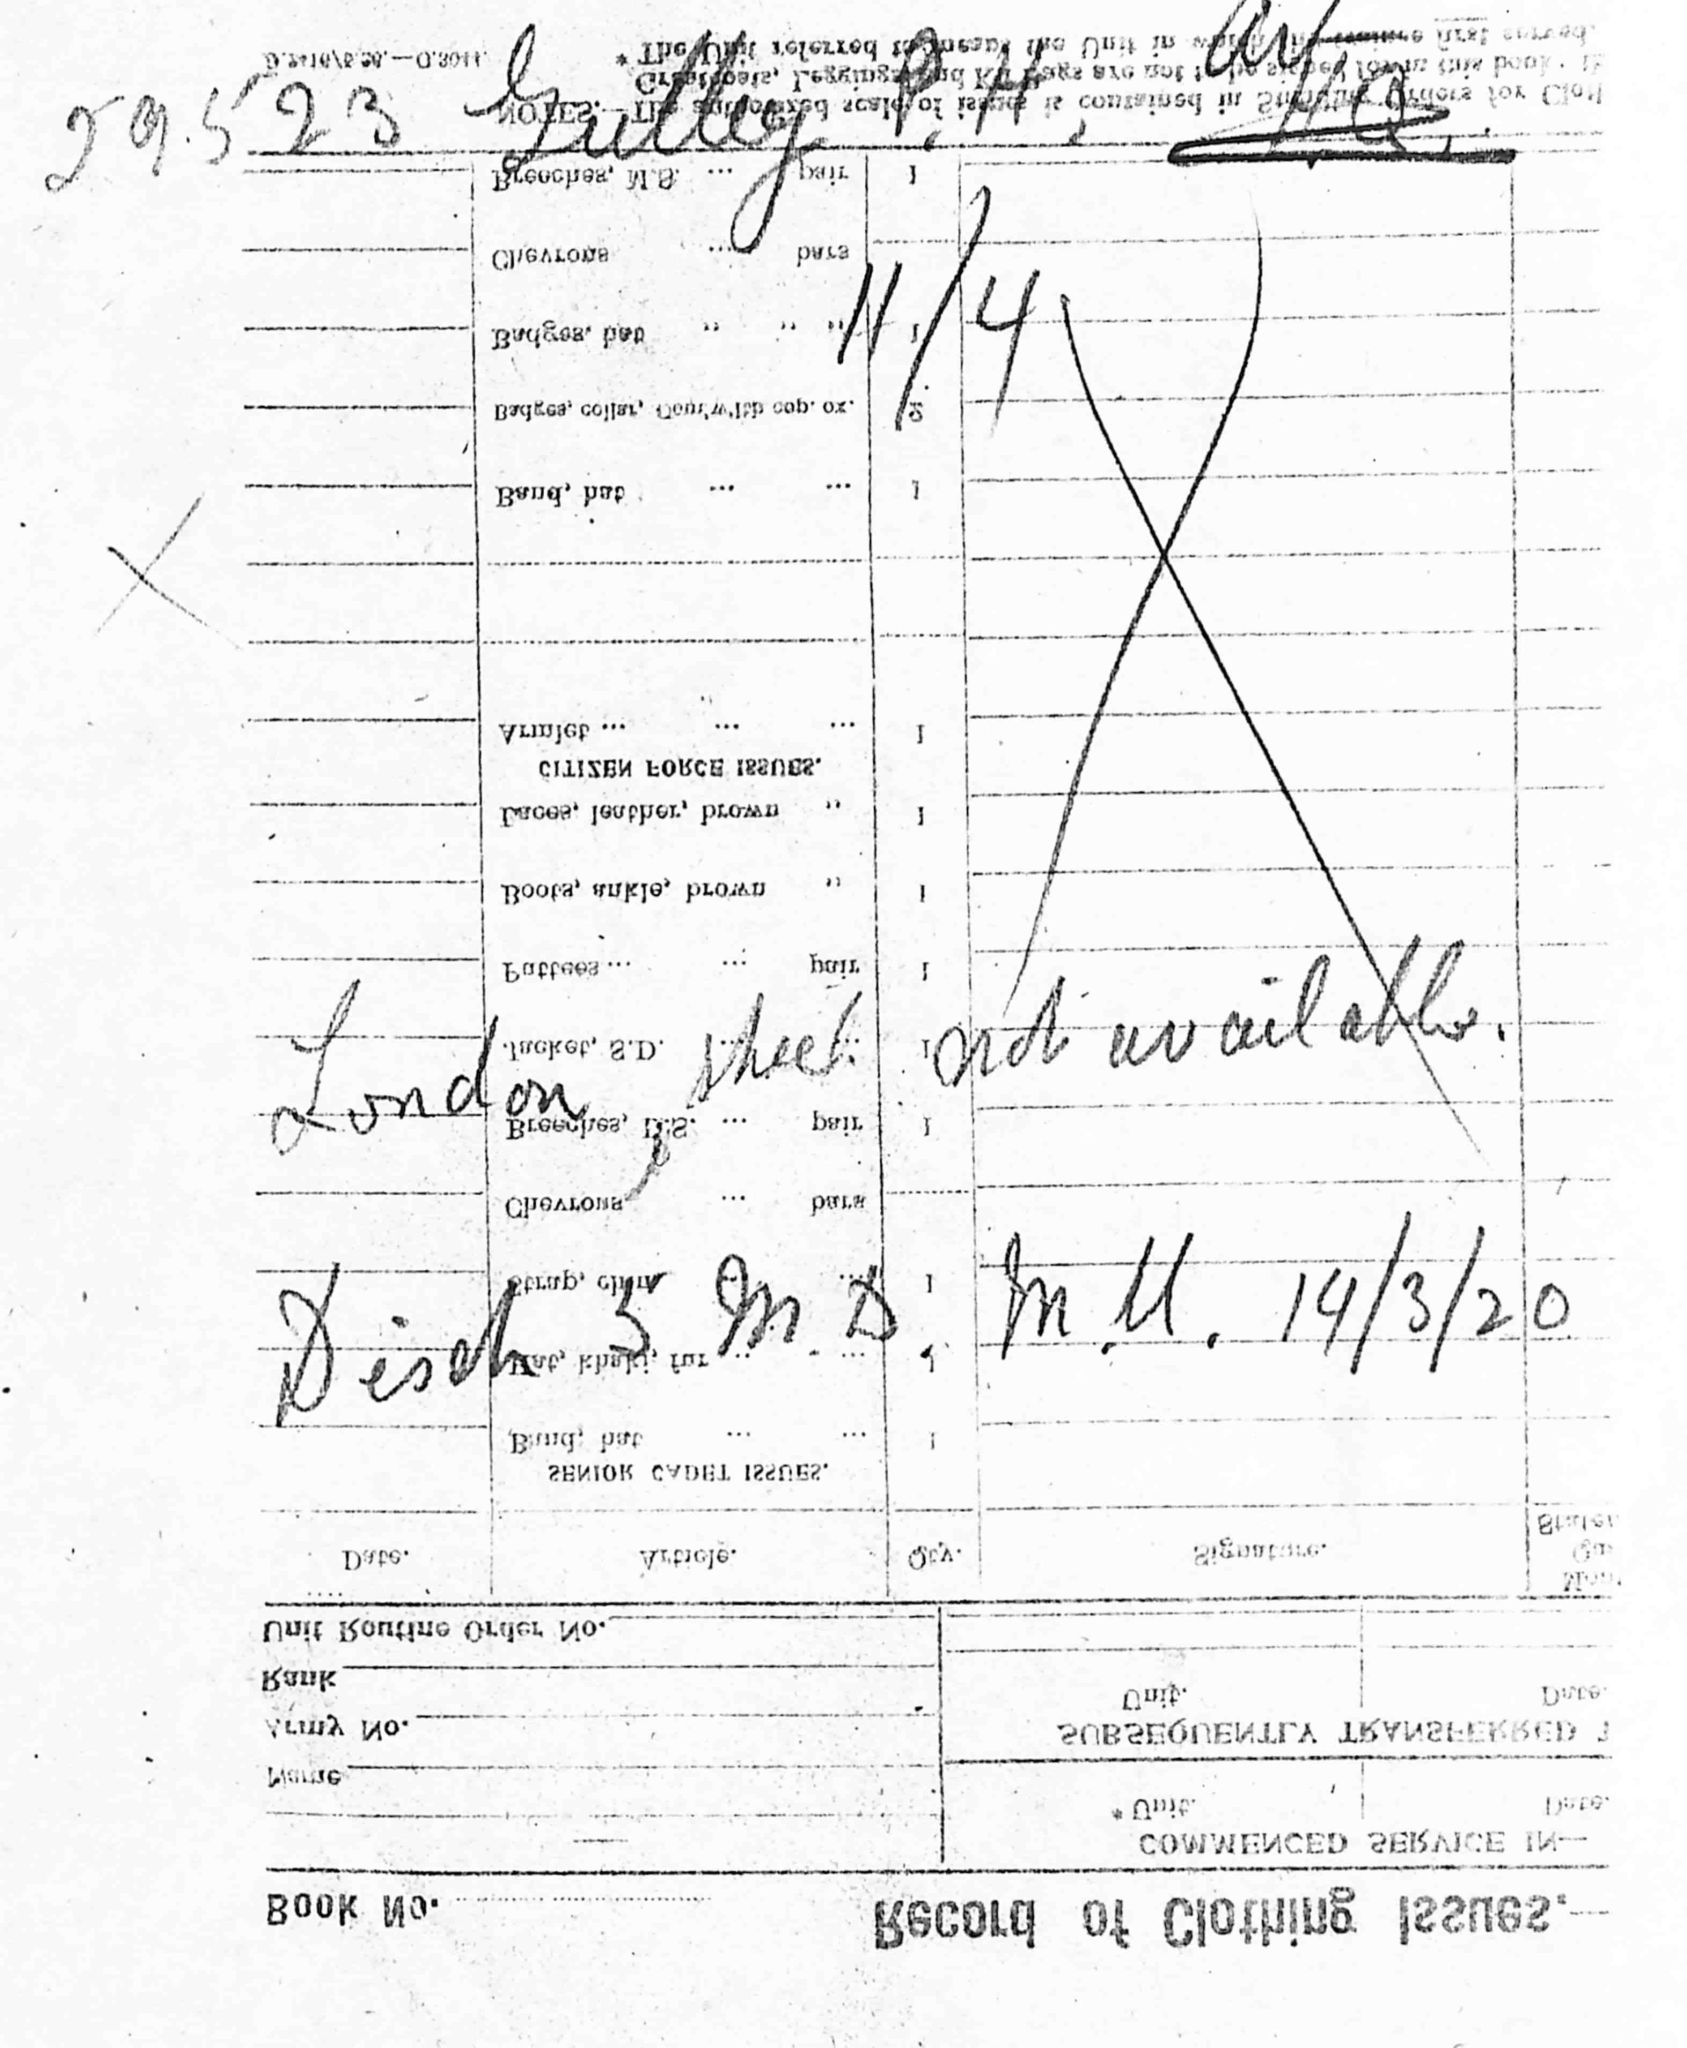 29523 Gulley P. H.
11/4
London sheet not available.
Disch 3 M D M.U. 14/3/20
Book No. Record of Clothing Issues.
COMMENCED SERVICE IN—
* Unit. Date.
Name
Army No.
SUBSEQUENTLY TRANSFERRED
Unit. Date.
Rank
Unit Routine Order No.
Date. Article. Qty. Signature.
SENIOR CADET ISSUES.
Band, hat ... ... 1
Hat, khaki, fur ... ... 1
Strap, chin ... 1
Chevrons ... bars
Breeches, D.S. ... pair 1
Jacket, S.D. ... 1
Puttees ... ... pair 1
Boots, ankle, brown ,, 1
Laces, leather, brown ,, 1
CITIZEN FORCE ISSUES.
Armlet ... ... ... 1
Band, hat ... ... 1
Badges, collar, 2
Badges, hat ,, ,, ,, 1
Chevrons ... bars
Breeches, M.S. ... pair 1
NOTES.—The authorized scale of issues is contained in Standing Orders for
Greatcoats, Leggings and Kit Bags are not to be signed for in this book:
* The Unit referred to means the Unit in which the trainee first served.